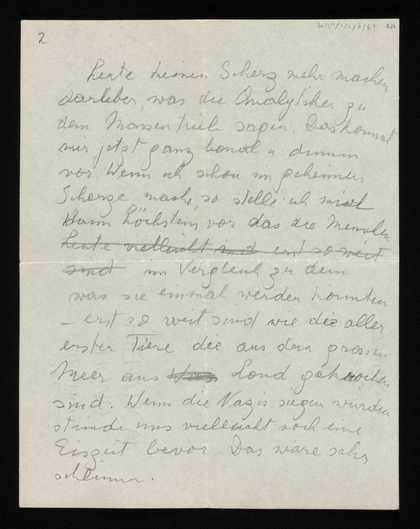 2
heute keinen Scherz mehr machen
darüber, was die Analytiker zu
dem Massentrieb sagen. Das kommt
mir jetzt ganz banal u dumm
vor. Wenn ich schon im geheimen
Scherze mache, so stelle ich mir
dann höchstens vor das die Menschen
heute vielleicht sind erst so weit
sind im Vergleich zu dem
was sie einmal werden könnten
– erst so weit sind wie die aller
ersten Tiere die aus dem grossen
Meer ans Land gekrochen
sind. Wenn die Nazis siegen würden
stünde uns vielleicht noch eine
Eiszeit bevor. Das wäre sehr
schlimm.